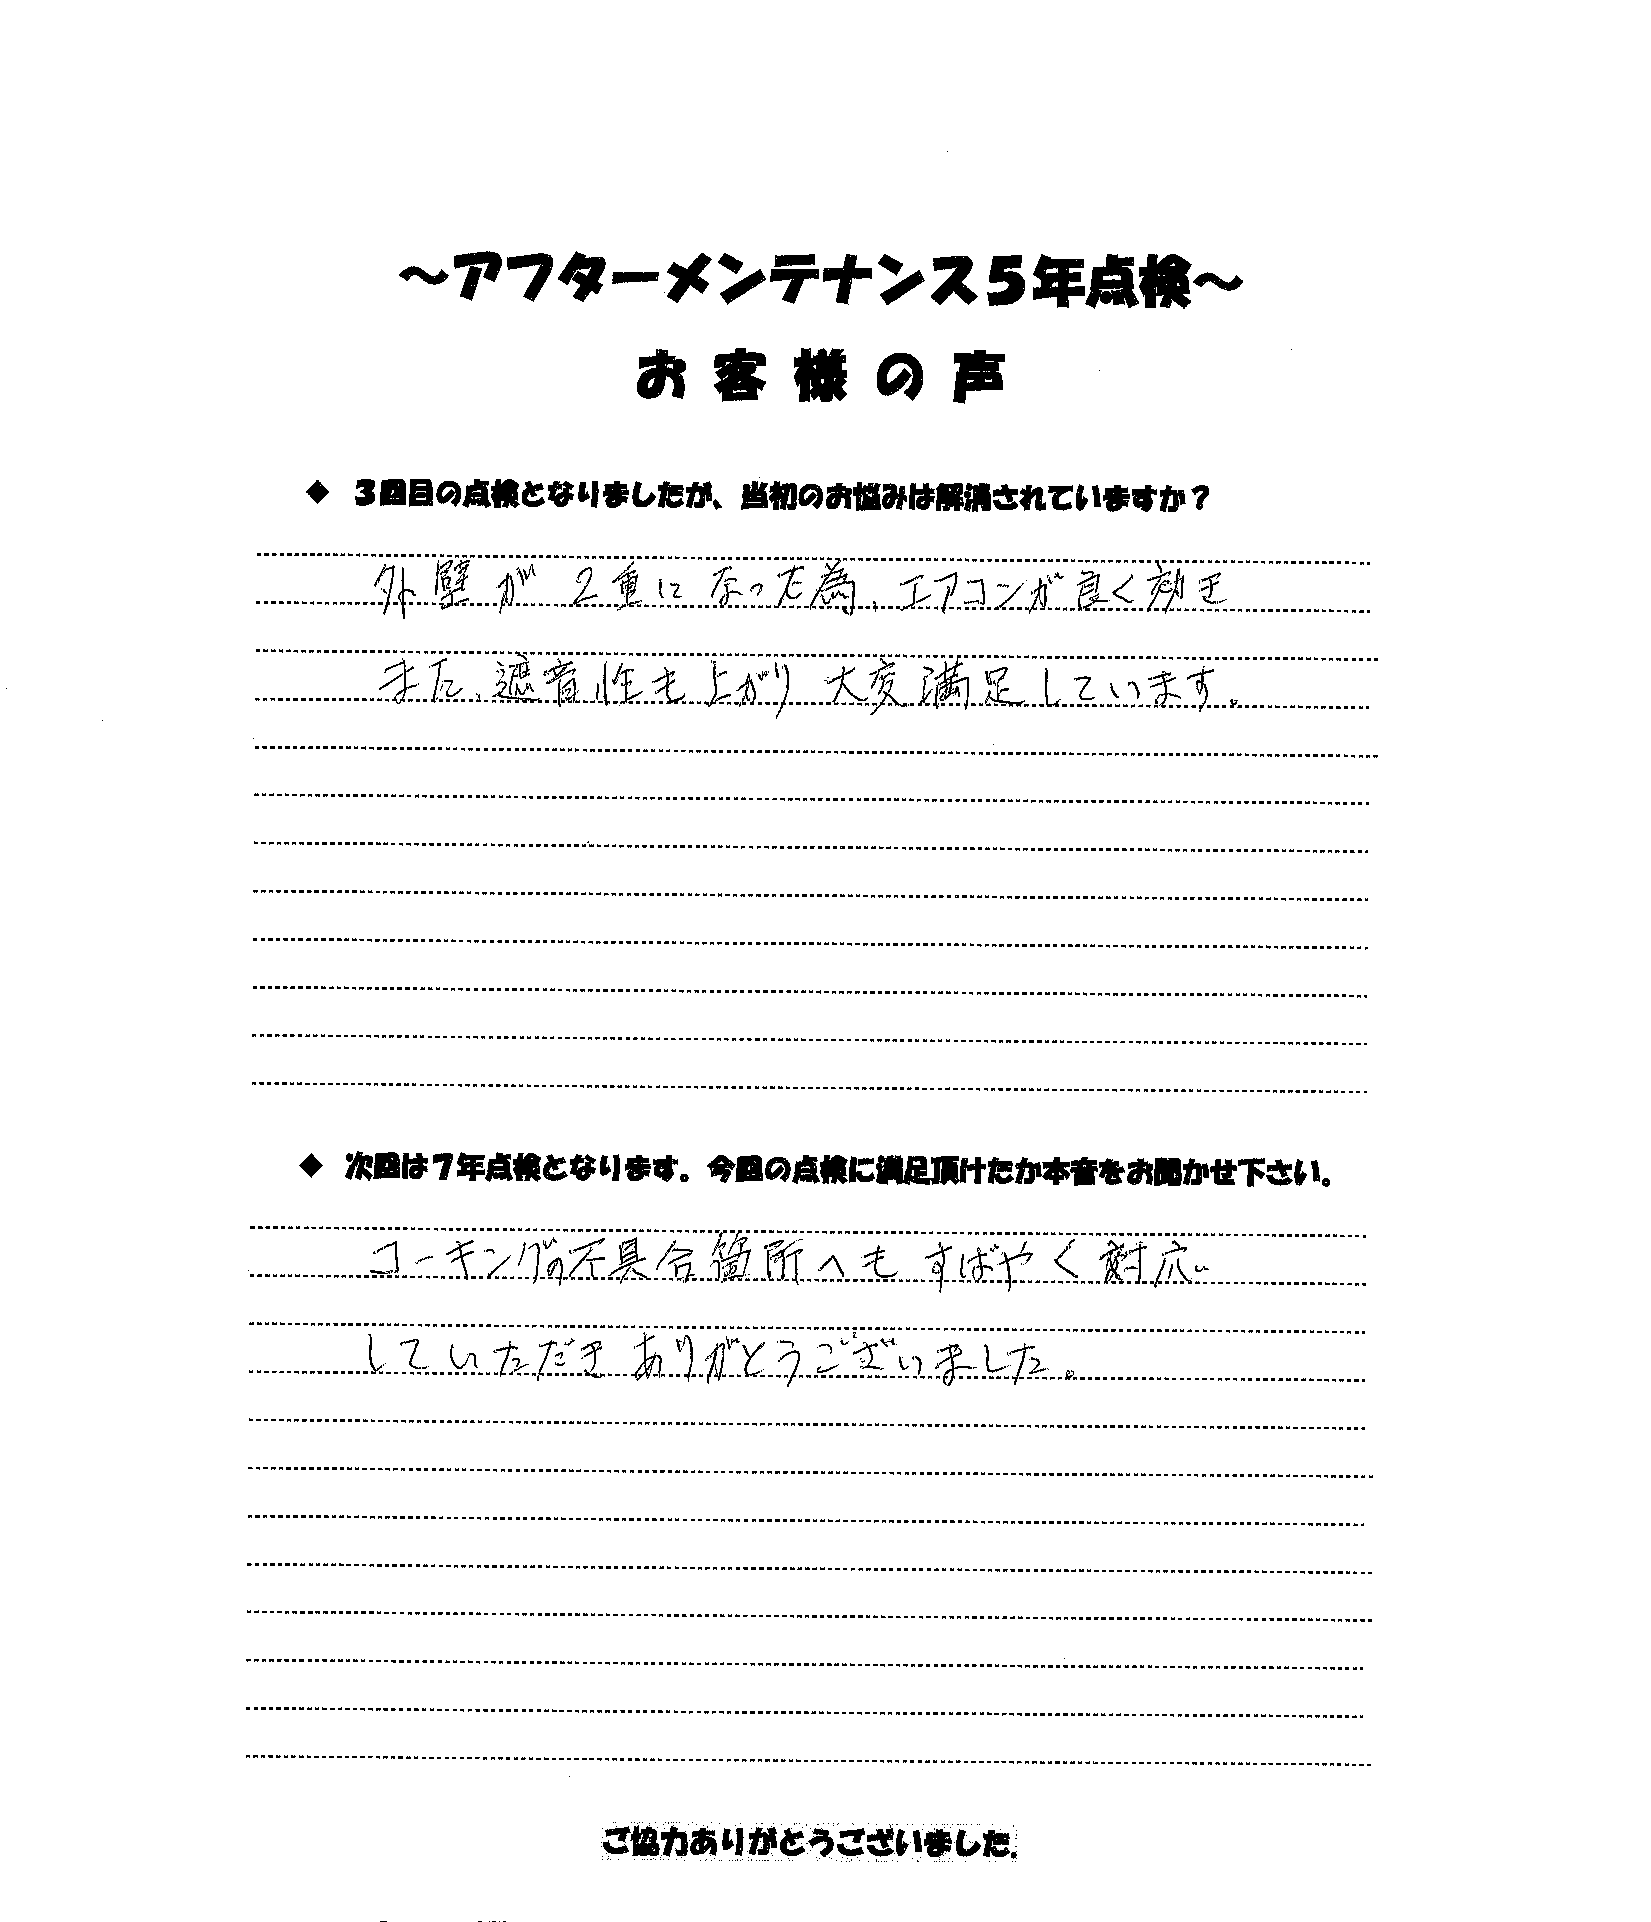 ～アフターメンテナンス５年点検～
お客様の声
◆ ３回目の点検となりましたが、当初のお悩みは解消されていますか？
外壁が２重になった為、エアコンが良く効き
また、遮音性も上がり大変満足しています。
◆ 次回は７年点検となります。今回の点検に満足頂けたか本音をお聞かせ下さい。
コーキングの不具合箇所へもすばやく対応
していただきありがとうございました。
ご協力ありがとうございました。